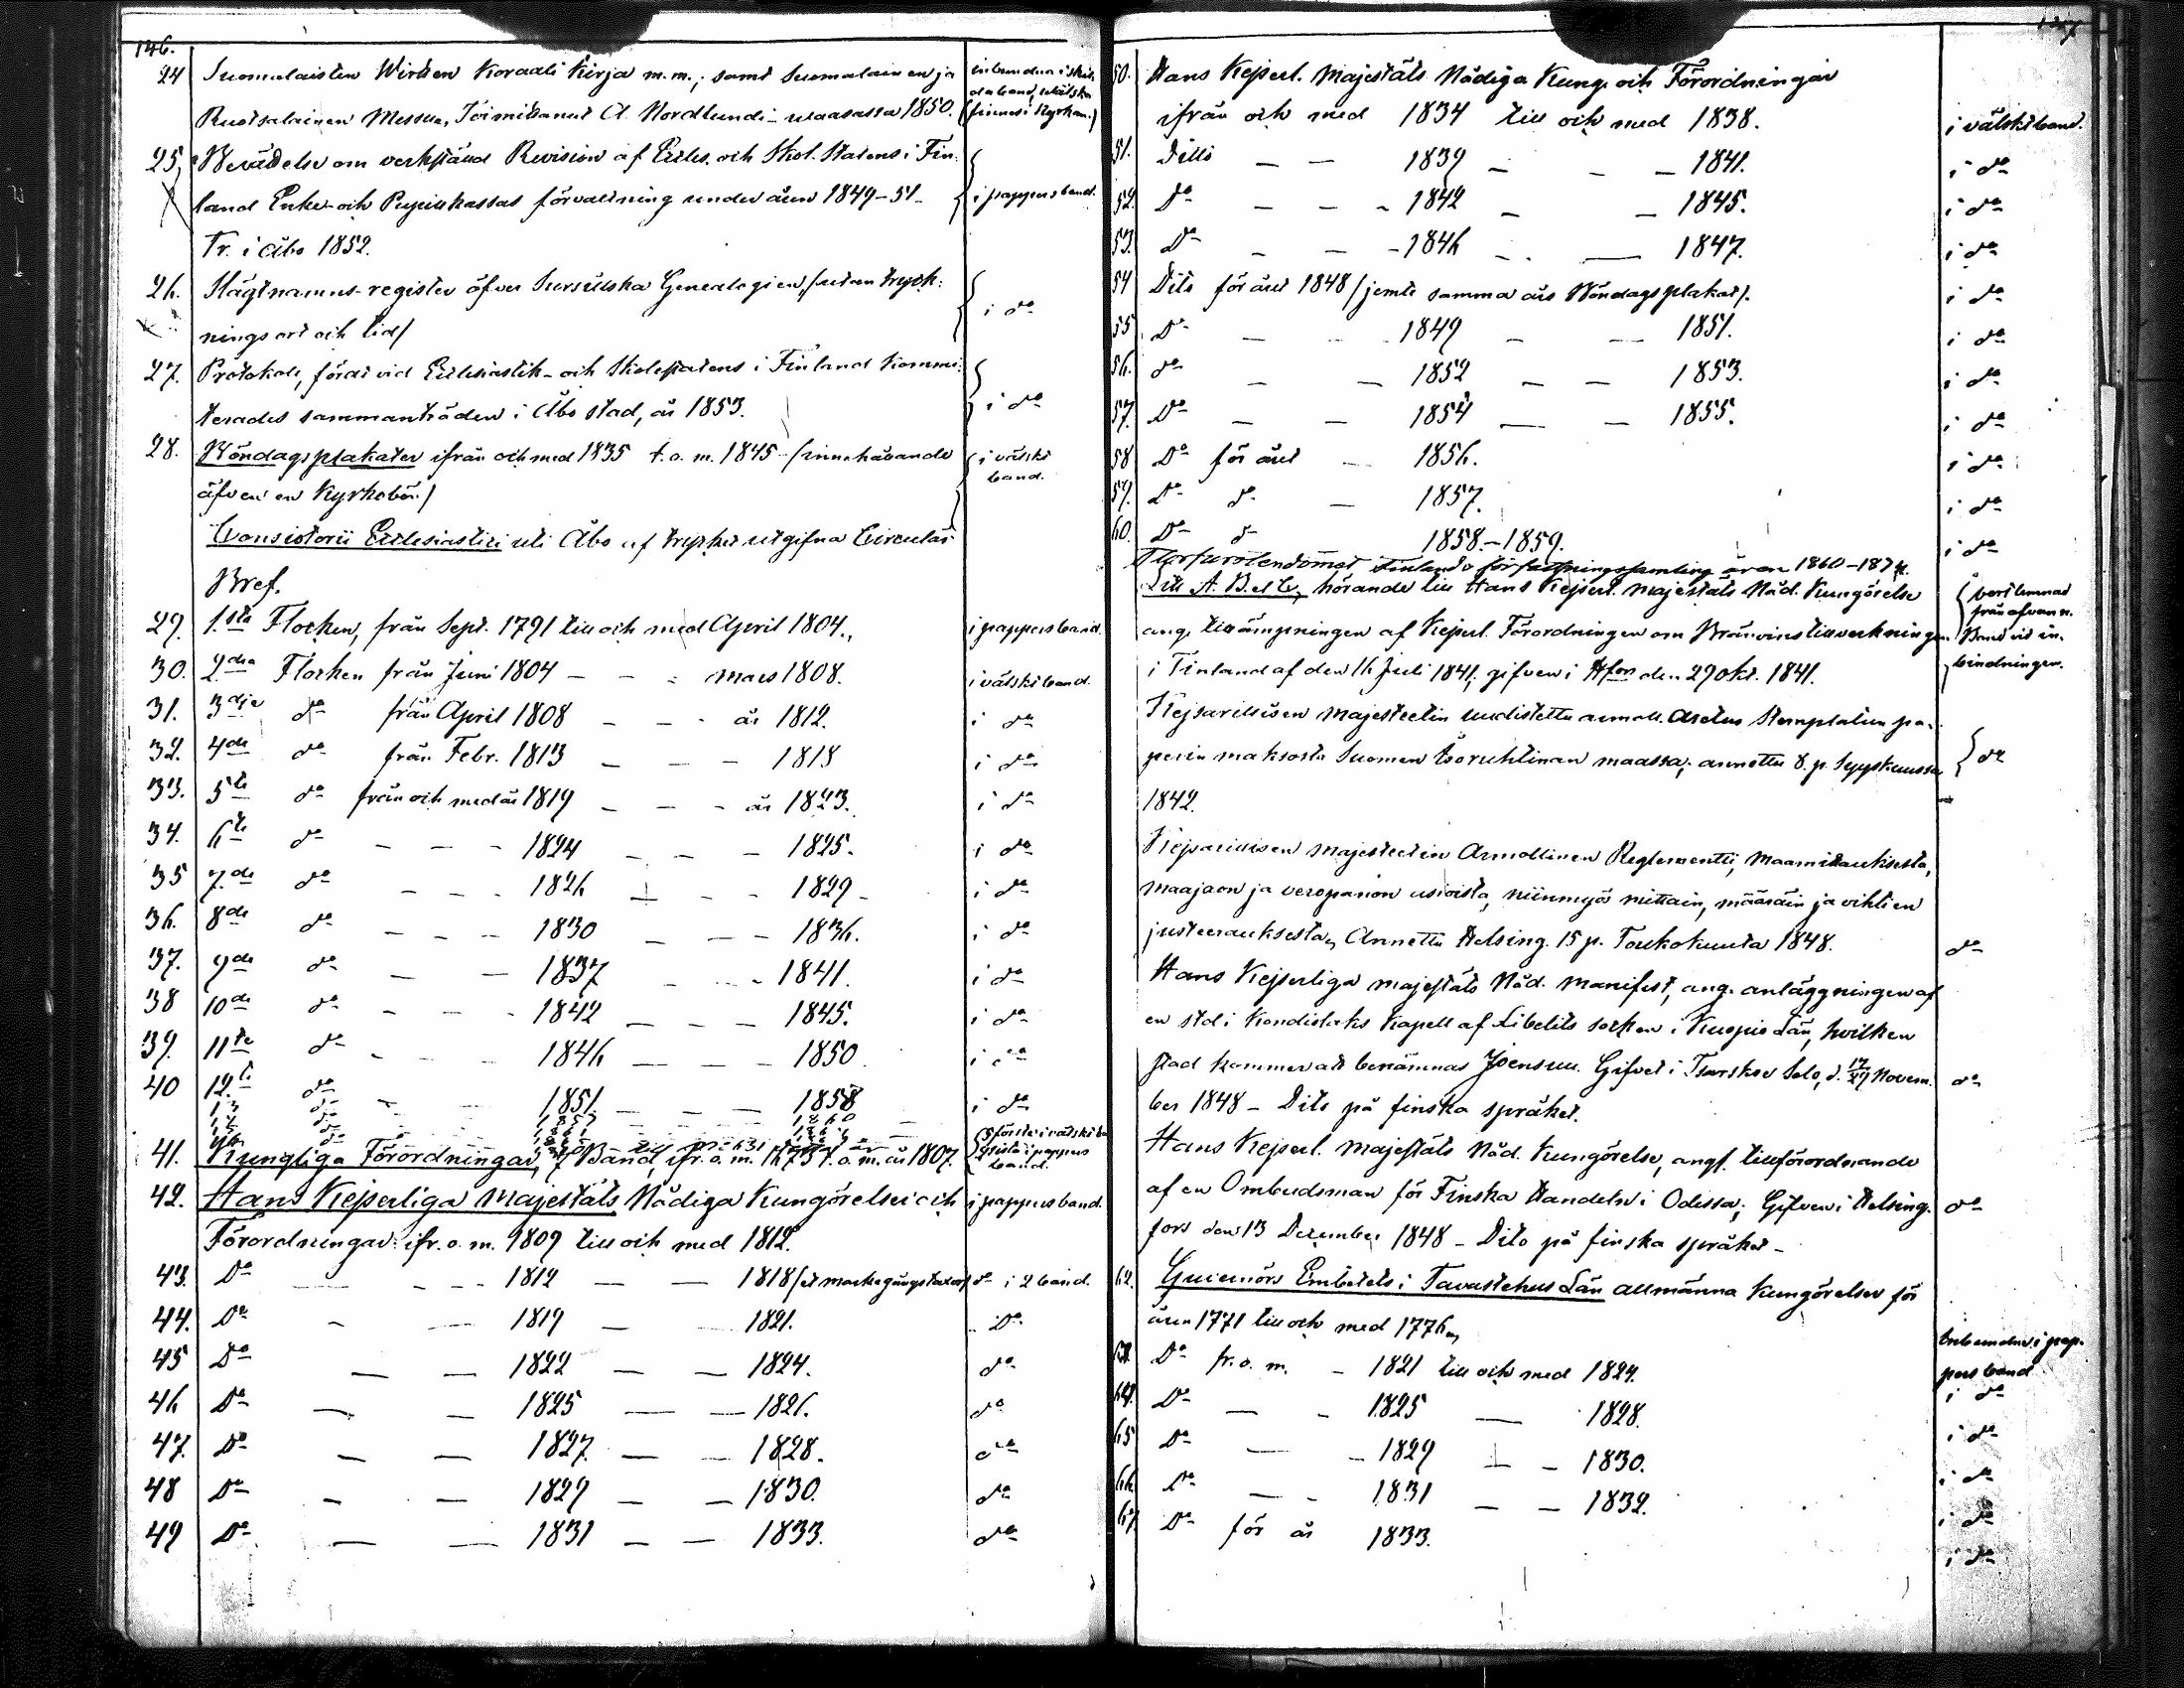 146.
24 Suomalaisten Wirsien Koraali Kirja m.m.; samt Suomalainen ja inbundna i skil-
Ruotsalainen Messu, Toimittanut A. Nordlund i Waasassa 1850. da band, hvilka (finnas i Kyrkan.)
25. Berättelse om verkstäld Revision af Eccles. och Skol. Statens i Fin-
land Enke- och Pupillkassas förvaltning under åren 1849-51. i pappersband.
Tr. i Åbo 1852.
26. Slägtnamns-register öfver Sursillska Genealogien, (utan tryck-
nings ort och tid) i do
27. Protokoll, fördt vid Ecklesiastik- och Skolestatens i Finland kommi-
terades sammanträden i Åbo stad, år 1853. i do
28. Böndagsplakater ifrån och med 1835 t.o.m. 1845 - (innehållande i välskt band.
äfven en Kyrkobön.)
Consistorii Ecclesiastici uti Åbo af trycket utgifna Circulär
Bref.
29. 1.sta Flocken, från Sept. 1791 till och med April 1804., i pappersband.
30. 2dra Flocken från Juni 1804 - - - mars 1808. i välskt band.
31. 3dje do från April 1808 - - - år 1812. i do
32. 4de do från Febr. 1813 - - - 1818 i do
33. 5te do från och med år 1819 - - - år 1823. i do
34. 6te do - - - 1824 - - - 1825. i do
35 7de do - - - 1826 - - - 1829 - i do
36. 8de do - - - 1830 - - - 1836. i do
37. 9de do - - 1837 - - 1841. i do
38 10de do - - - 1842 - - - 1845. i do
39. 11te do - - - 1846 - - - 1850. i do
40 12.te do - - 1851 - - - 1858 i do
41. Kungliga Förordningar, 7 Band, ifr. o. m. t. o. m. år 1807. 5 förste i välskt band
band.
42. Hans Kejserliga Majestäts Nådiga Kungörelser och i pappersband.
Förordningar ifr. o. m. 1809 till och med 1812.
43. Do - - - 1812 - - 1818 (et markegångstaxor) do i 2 band.
44. Do - - 1819 - - 1821. Do
45 Do - - 1822 - - 1824. do
46 Do - - 1825 - - 1826. do
47. Do - - 1827. - - 1828. do
48 Do - - 1829 - - 1830. do
49 Do - - 1831 - - 1833. do
50. Hans Kejserl. Majestäts Nådiga Kung. och Förordningar
ifrån och med 1834 till och med 1838. i välskt band.
51. Ditto - - 1839 - - - 1841. i do
52. do - - - 1842 - - 1845. i do
53. Do - - - 1846 - - 1847. i do
54 Dito för året 1848 (jemte samma års Böndags plakat). i do
55 Do - - 1849 - - 1851. i do
56. do - - 1852 - - 1853. i do
57. Do - - 1854 - - 1855. i do
58 Do för året - 1856. i do
59. Do do - 1857. i do
60. Do do 1858.-1859. i do
Storfurstendömet Finlands författningssamling åren 1860-1874.
Litt A. B. et C., hörande till Hans Kejserl. Majestäts Nåd. Kungörelse (bortlemnad från ofvan n.
ang. tillämpningen af Kejserl. Förordningen om Bränvinstillverkningen Band vid in-
i Finland af den 16 Juli 1841; gifven i Hfors den 29 Okt. 1841. bindningen.
Kejsarillisen Majesteetin uudistettu armoll. Asetus Stemplatun pa-
perin maksosta Suomen Isoruhtinan maassa; annettu 8. p. Syyskuussa do
1842.
Kejsarillisen Majesteetin Armollinen Reglementti, maamittauksesta,
maajaon ja veropanon asioista, niinmyös mittain, määräin ja vihtien
justeerauksesta, Annettu Helsing. 15 p. Toukokuuta 1848. do
Hans Kejserliga Majestäts Nåd. Manifest, ang. anläggningen af
en stad i Kondislaks Kapell af Libelits socken i Kuopio Län, hvilken
stad kommer att benämnas Joensuu. Gifvet i Tsarskoe Selo, d. 17/29 Novem- do
ber 1848 - Dito på finska språket.
Hans Kejserl. Majestäts Nåd. Kungörelse, angf. tillförordnande
af en Ombudsman för Finska Handeln i Odessa; Gifven i Helsing- do
fors den 13 December 1848 - Dito på finska språket -
62. Guvernörs Embetets i Tavastehus Län allmänna Kungörelser för
åren 1771 till och med 1776, inbundna i pap-
63. Do fr. o. m. - 1821 till och med 1824. pers band
64. Do - - 1825 - 1828. i do
65 Do - - 1829 - - 1830. i do
66. Do - - 1831 - - 1832. i do
67. Do för år 1833. i do
i do